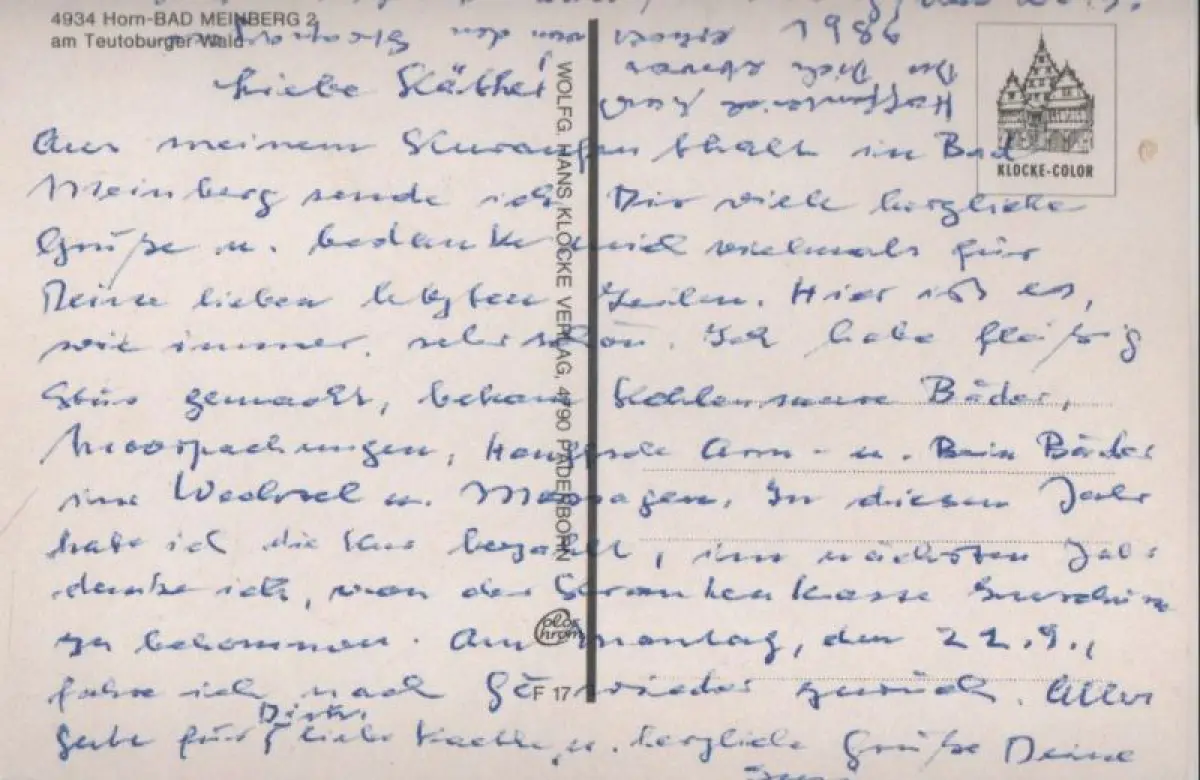 4934 Horn-BAD MEINBERG 2
am Teutoburger Wald
1986
Hoffentlich hast
Du Dich etwas
von den
KLOCKE-COLOR
WOLFG. HANS KLOCKE VERLAG, 4790 PADERBORN
Liebe Käthe!
Aus meinem Kuraufenthalt in Bad
Meinberg sende ich Dir viele herzliche
Grüße u. bedanke mich vielmals für
Deine lieben letzten Zeilen. Hier ist es,
wie immer, sehr schön. Ich habe fleißig
Kur gemacht, bekam Kohlensaure Bäder,
Moorpackungen, Arm- u. Bein Bäder
im Wechsel u. Massagen. In diesem Jahr
habe ich die Kur bezahlt, im nächsten Jahr
denke ich, von der Krankenkasse Zuschüsse
zu bekommen. Am Montag, den 22.9.,
fahre ich nach wieder zurück. Alles
Gute für Dich, liebe Kaethe, u. herzliche Grüße Deine
F 17